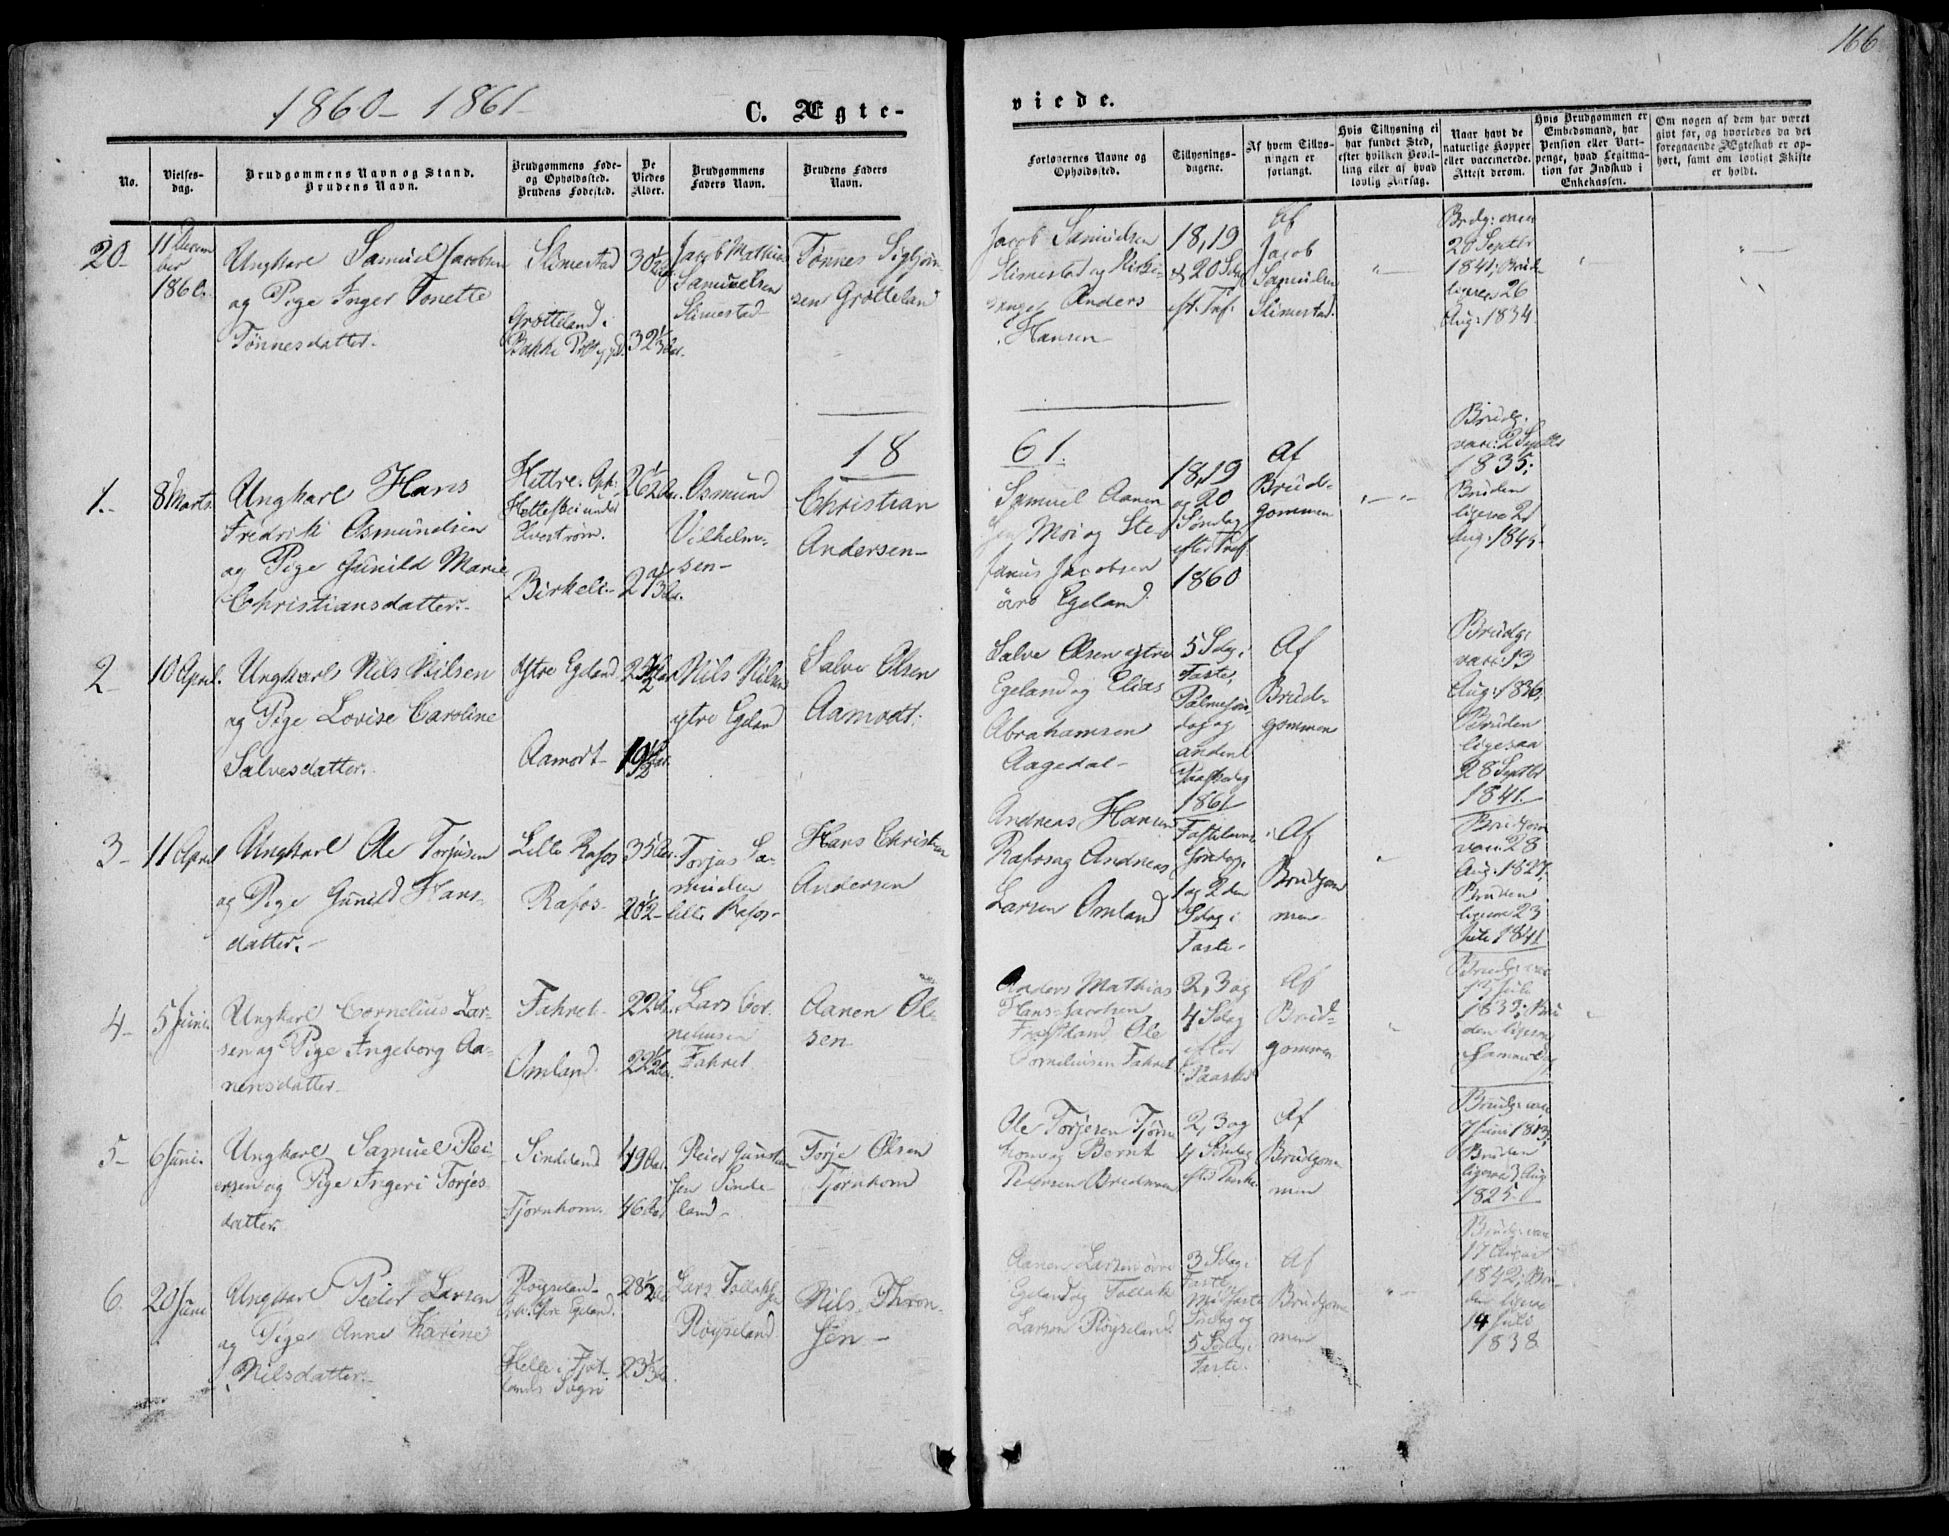 166
1860 - 1861
C. Ægte-
viede.
No.
Vielses-
dag.
Brudgommens Navn og Stand.
Brudens Navn.
Brudgommens Føde-
og Opholdssted.
Brudens Fødested.
De
Viedes
Alder.
Brudgommens
Faders Navn.
Brudens Faders
Navn.
Forlovernes Navne og
Opholdssted.
Tillysnings-
dagene.
Af hvem Tillys-
ningen er
forlangt.
Hvis Tillysning ei
har fundet Sted,
efter hvilken Bevil-
ling eller af hvad
lovlig Aarsag.
Naar havt de
naturlige Kopper
eller vaccinerede.
Attest derom.
Hvis Brudgommen er
Embedsmand, har
Pension eller Vart-
penge, hvad Legitima-
tion for Indskud i
Enkekassen.
Om nogen af dem har været
givt før, og hvorledes da det
foregaaende Ægteskab er op-
hørt, samt om lovligt Skifte
er holdt.
20-
11 Decem
ber
1860.
Ungkarl Samuel Jacobsen
og Pige Inger Tonette
Tønnesdatter.
Slimestad
Grøtteland i
Bakke
30 1/2
32 1/3
Jacob Mathias
Samuelsen
Slimestad
Tønnes Sigbjørn-
sen Grøtteland
Jacob Samuelsen
Slimestad og
Anders
Hansen
18, 19
& 20 Sdag
eft. Tref.
Af
Jacob
Samuelsen
Slimestad.
20 Septbr
1841. Brud-
26
Aug. 1834
1861.
1.-
8 Marts.
Ungkarl Hans
Fredrik Osmundsen
og Pige Gunild Marie
Christiansdatter.-
Hittrø.
under
Birkeli-
26 1/2
Osmund
Vilhelm-
sen-
Christian
Andersen-
Samuel Aanen
sen Moi og Ste-
fanus Jacobsen
øvre Egeland.
18, 19
og 20
Søndag
efter Tref.
1860
Af
Brud-
gommen
Brudg.
vacc. 2 Septbr
1835.
Bruden
Aug. 1845.
2-
10 April.
Ungkarl Nils Nilsen
og Pige Lovise Caroline
Salvesdatter.
Ytre Egeland
Aamodt-
19 1/2
Nils Nilsen
ytre Egeland
Salve Olsen
Aamodt.
Salve Olsen ytre
Egeland og Elias
Abrahamsen
Aagedal-
5 Sdag i
Faste,
Palmesøn-
dag og
anden
Paaskedag
1861
Af
Brud-
gommen
Brudg.
vacc. 13
Aug. 1836.
Bruden
ligesaa
28 Septbr
1841.
3-
11 April
Ungkarl Ole Torjusen
og Pige Gunild Hans-
datter.-
Lille Rafos
Rafos-
35
20 1/2
Torjus Sa-
muelsen
lille Rafos-
Hans Christian
Andersen
Andreas Hansen
Rafos og Andreas
Larsen Omland
Fastelavns
Søndag,
1 og 2den
Sdag i
Faste.
Af
Brudgom
men-
vacc. 28
Aug. 1827.
Bruden
23
1841
4-
5 Juni.
Ungkarl Cornelius Lar-
sen og Pige Ingeborg Aa-
nensdatter
Fahret-
Omland.
22
22 1/2
Lars Cor-
neliusen
Fahret
Aanen Ol-
sen
Anders Mathias
Hans Jacobsen
Ole
Corneliusen Fahret
2, 3 og
4 Sdag
efter
Paaske
Af
Brud-
gommen
Brudg.
1833. Bru
den
5-
6 Juni.
Ungkarl Samuel Rei-
ersen og Pige Ingeri Torjes-
datter.
Sindeland
Tjørnhom.
49
46
Reier
sen Sinde-
land-
Torje Olsen
Tjørnhom
Ole Torjesen Tjørn
hom og Bernt
Petersen
2, 3 og
4 Søndag
efter Paaske
Af
Brudgom
men
7 Juni 1813.
Bruden
3 Aug
1825-
6.
20 Juni
Ungkarl Peder Larsen
og Pige Anne Karine
Nilsdatter.-
Røyseland-
Helle i Fjot-
lands Sogn
28 1/2
23 1/3
Lars Tollaksen
Røyseland
Nils Thron-
sen-
Aanen Larsen øvre
Egeland og Tollak
Larsen Røyseland.
3 Sdag i
Faste,
Midfaste
Søndag og
5 Sdag i
Faste.
Af
Brudgom
men
17 August
1842. Bru-
14 Juli
1838